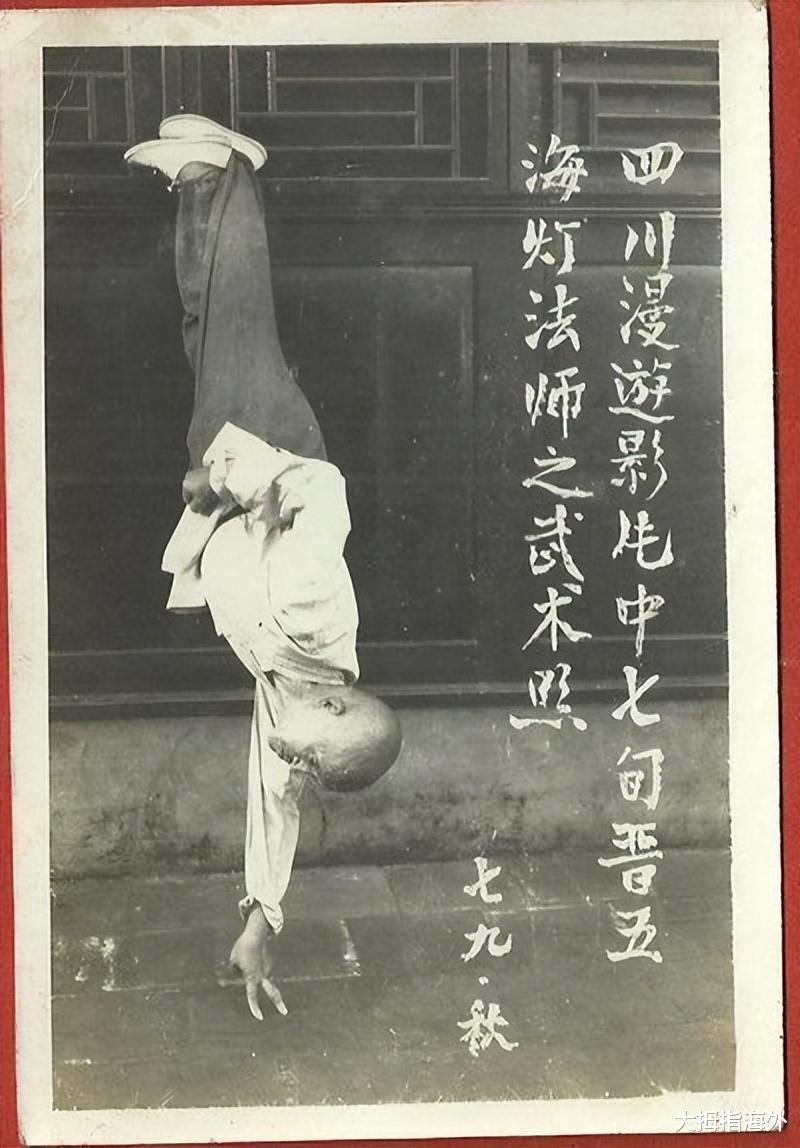 四川漫遊影片中七旬晋五
海灯法师之武术照
七九·秋
大拇指海外